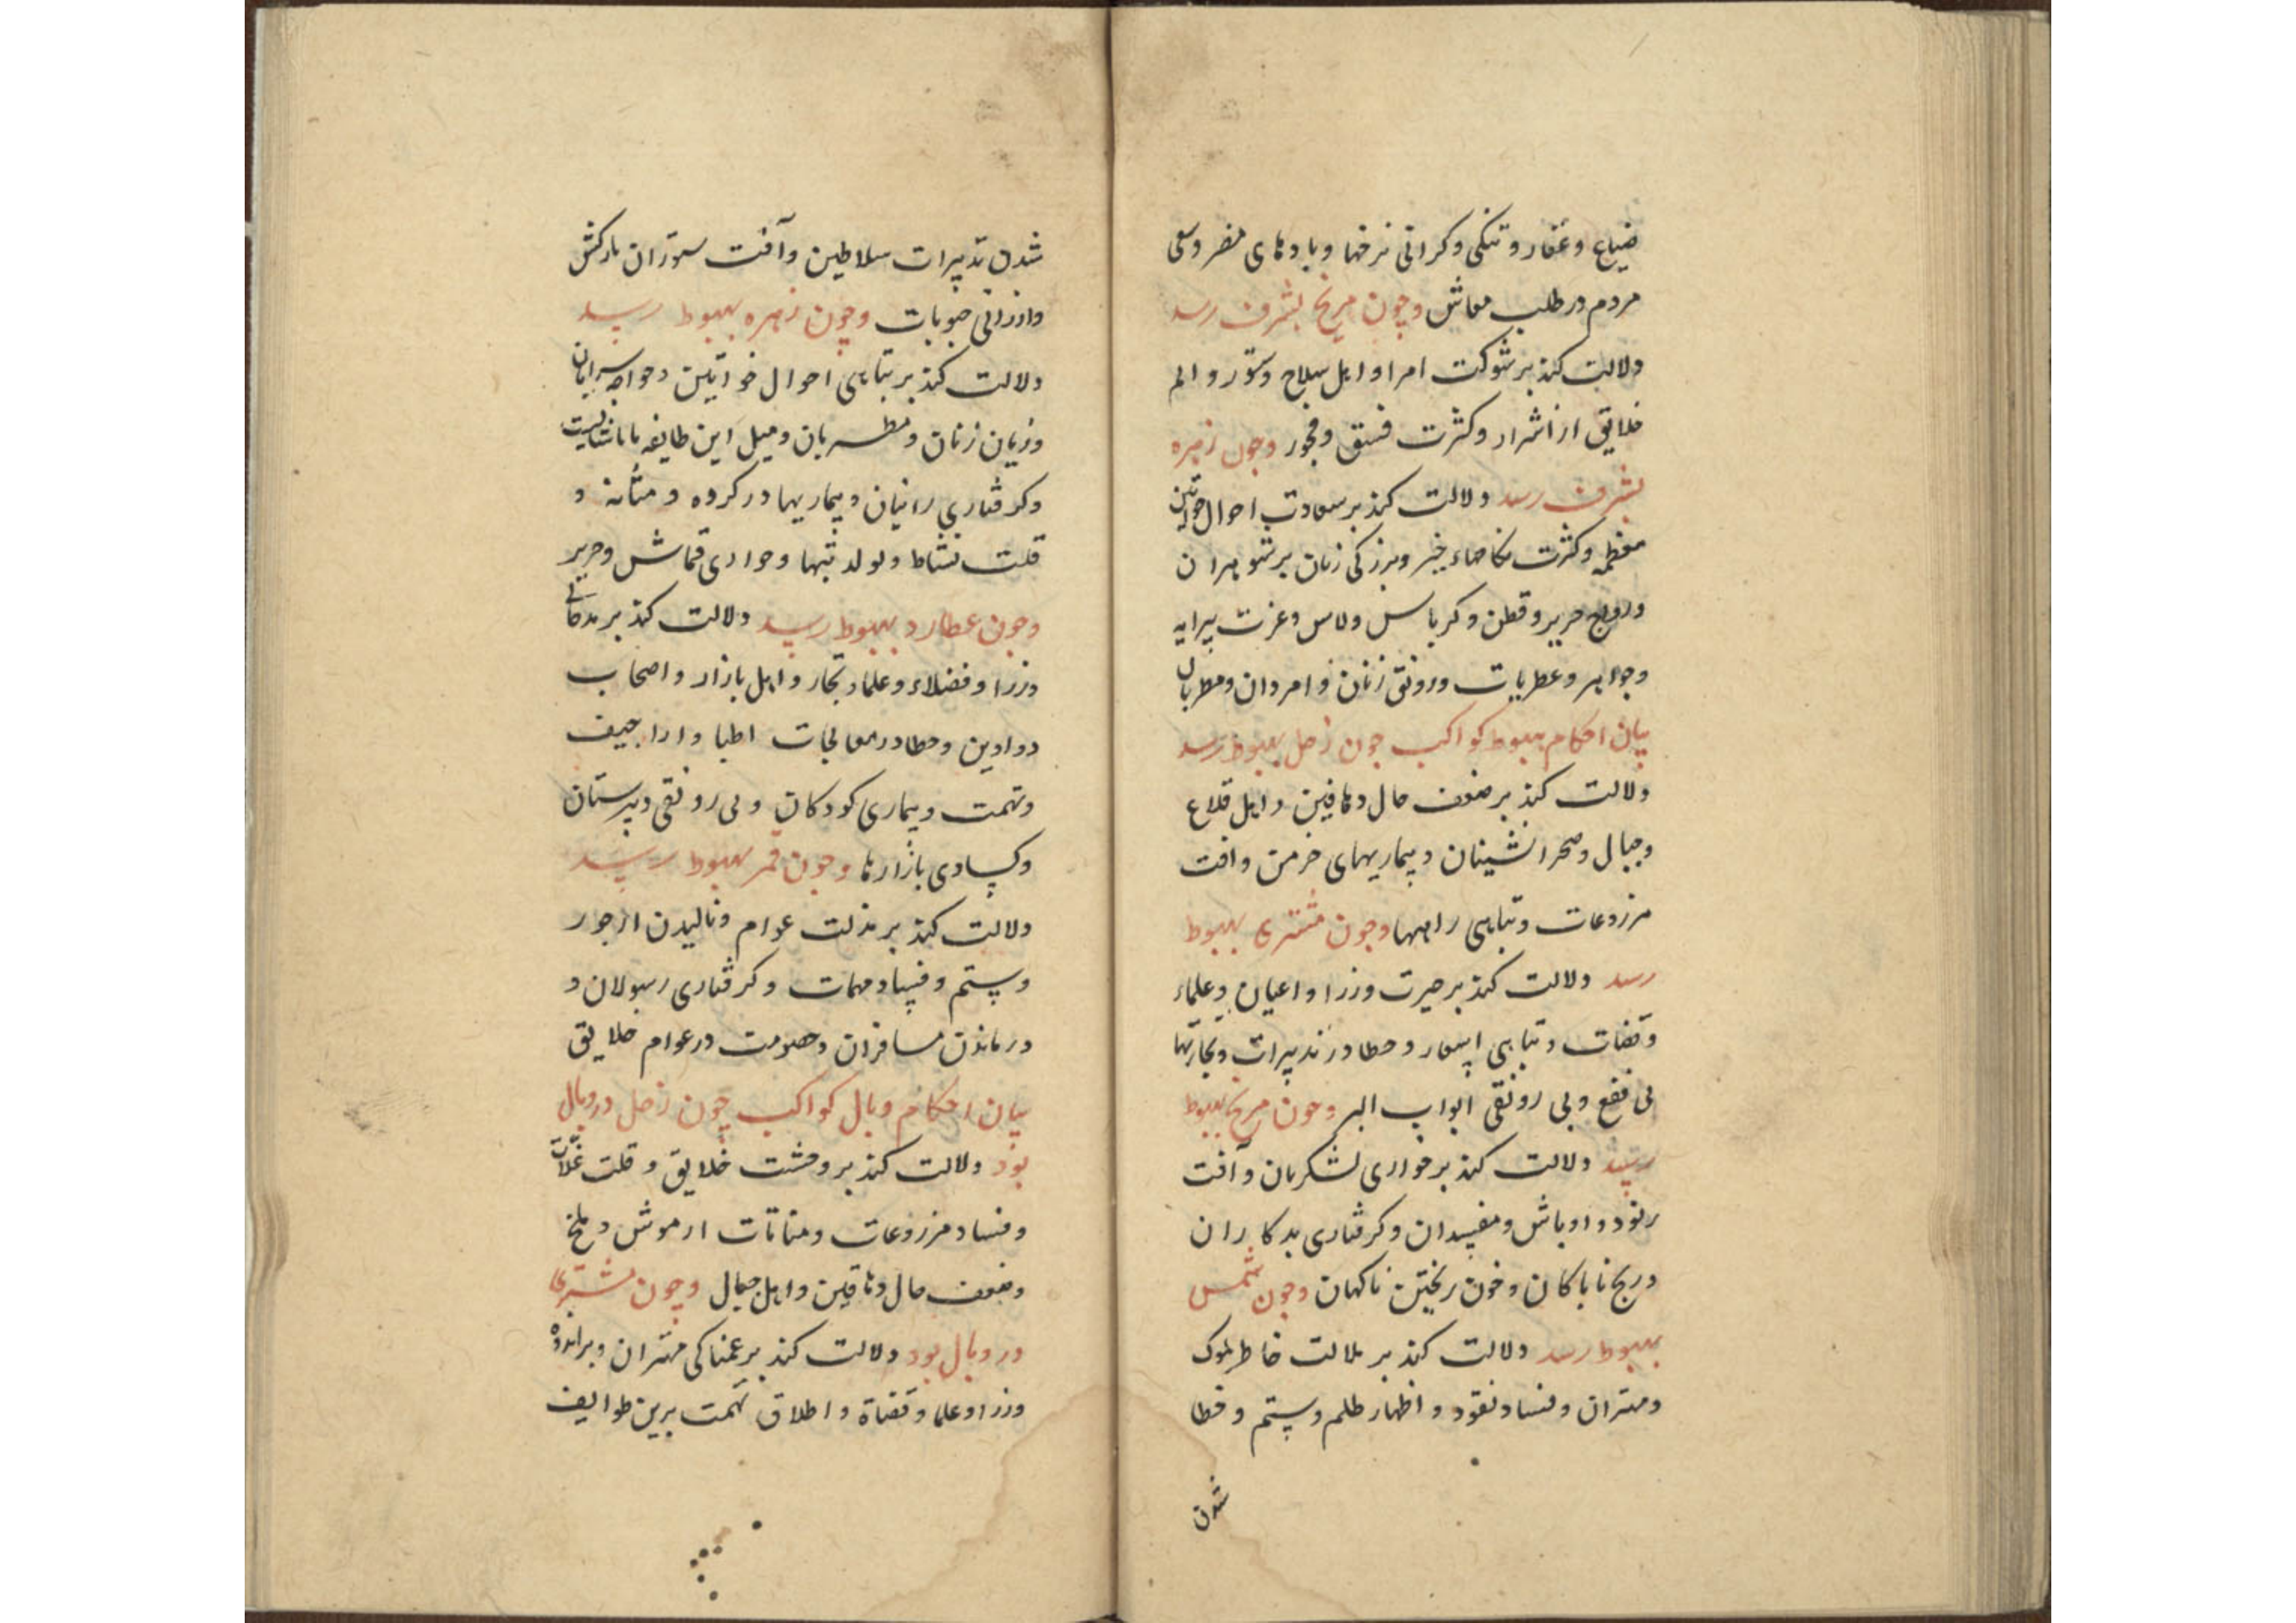 ضیاع و عقار و تنکی و کرانی نرخها و بادهای مضر و سعی
مردم در طلب معاش و چون مریخ بشرف رسد
دلالت کند بر شوکت امرا و اهل سلاح و ستور و الم
خلایق از اشرار و کثرت فسق و فجور و چون زهره
بشرف رسد دلالت کند بر سعادت احوال خواتین
معظم و کثرت نکاحهاء خیر و بزرکی زنان بر شوهران
و رواج حریر و قطن و کرباس و لاس و عزت پیرایه
و جواهر و عطریات و رونق زنان و امردان و مطربان
بیان احکام هبوط کواکب چون زحل بهبوط رسد
دلالت کند بر ضعف حال دهاقین و اهل قلاع
و جبال و صحرانشینان و بیماریهای مزمن و افت
مزروعات و تباهی راهها و چون مشتری بهبوط
رسد دلالت کند بر حیرت وزرا و اعیان و علماء
و قضات و تباهی اسعار و خطا در تدبیرات و تجارتها
بی نفع و بی رونقی ابواب البر و چون مریخ بهبوط
رسد دلالت کند بر خواری لشکریان و آفت
رنود و اوباش و مفسدان و کرفتاری بدکاران
و رنج ناپاکان و خون ریختن ناکهان و چون شمس
بهبوط رسد دلالت کند بر ملالت خاطر ملوک
و مهتران و فساد نقود و اظهار ظلم و ستم و خطا
شدن
شدن تدبیرات سلاطین و آفت ستوران بارکش
و ارزانی حبوبات و چون زهره بهبوط رسد
دلالت کند بر تباهی احوال خواتین و خواجه سرایان
و زیان زنان و مطربان و میل این طایفه با ناشایست
و کرفتاری زانیان و بیماریها در کرده و مثانه و
قلت نشاط و تولد تبها و خواری قماش و حریر
و چون عطارد بهبوط رسد دلالت کند بر بدحالی
وزرا و فضلاء و علما و تجار و اهل بازار و اصحاب
دواوین و خطا در معالجات اطبا و اراجیف
و تهمت و بیماری کودکان و بی رونقی دبیرستان
و کسادی بازارها و چون قمر بهبوط رسد
دلالت کند بر مذلت عوام و نالیدن از جور
و ستم و فساد مهمات و کرفتاری رسولان و
درماندن مسافران و خصومت در عوام خلایق
بیان احکام وبال کواکب چون زحل در وبال
بود دلالت کند بر وحشت خلایق و قلت غلات
و فساد مزروعات و منباتات از موش و ملخ
و ضعف حال دهاقین و اهل جبال و چون مشتری
در وبال بود دلالت کند بر غمناکی مهتران و بر اندوه
وزرا و علما و قضاة و اطلاق تهمت برین طوایف